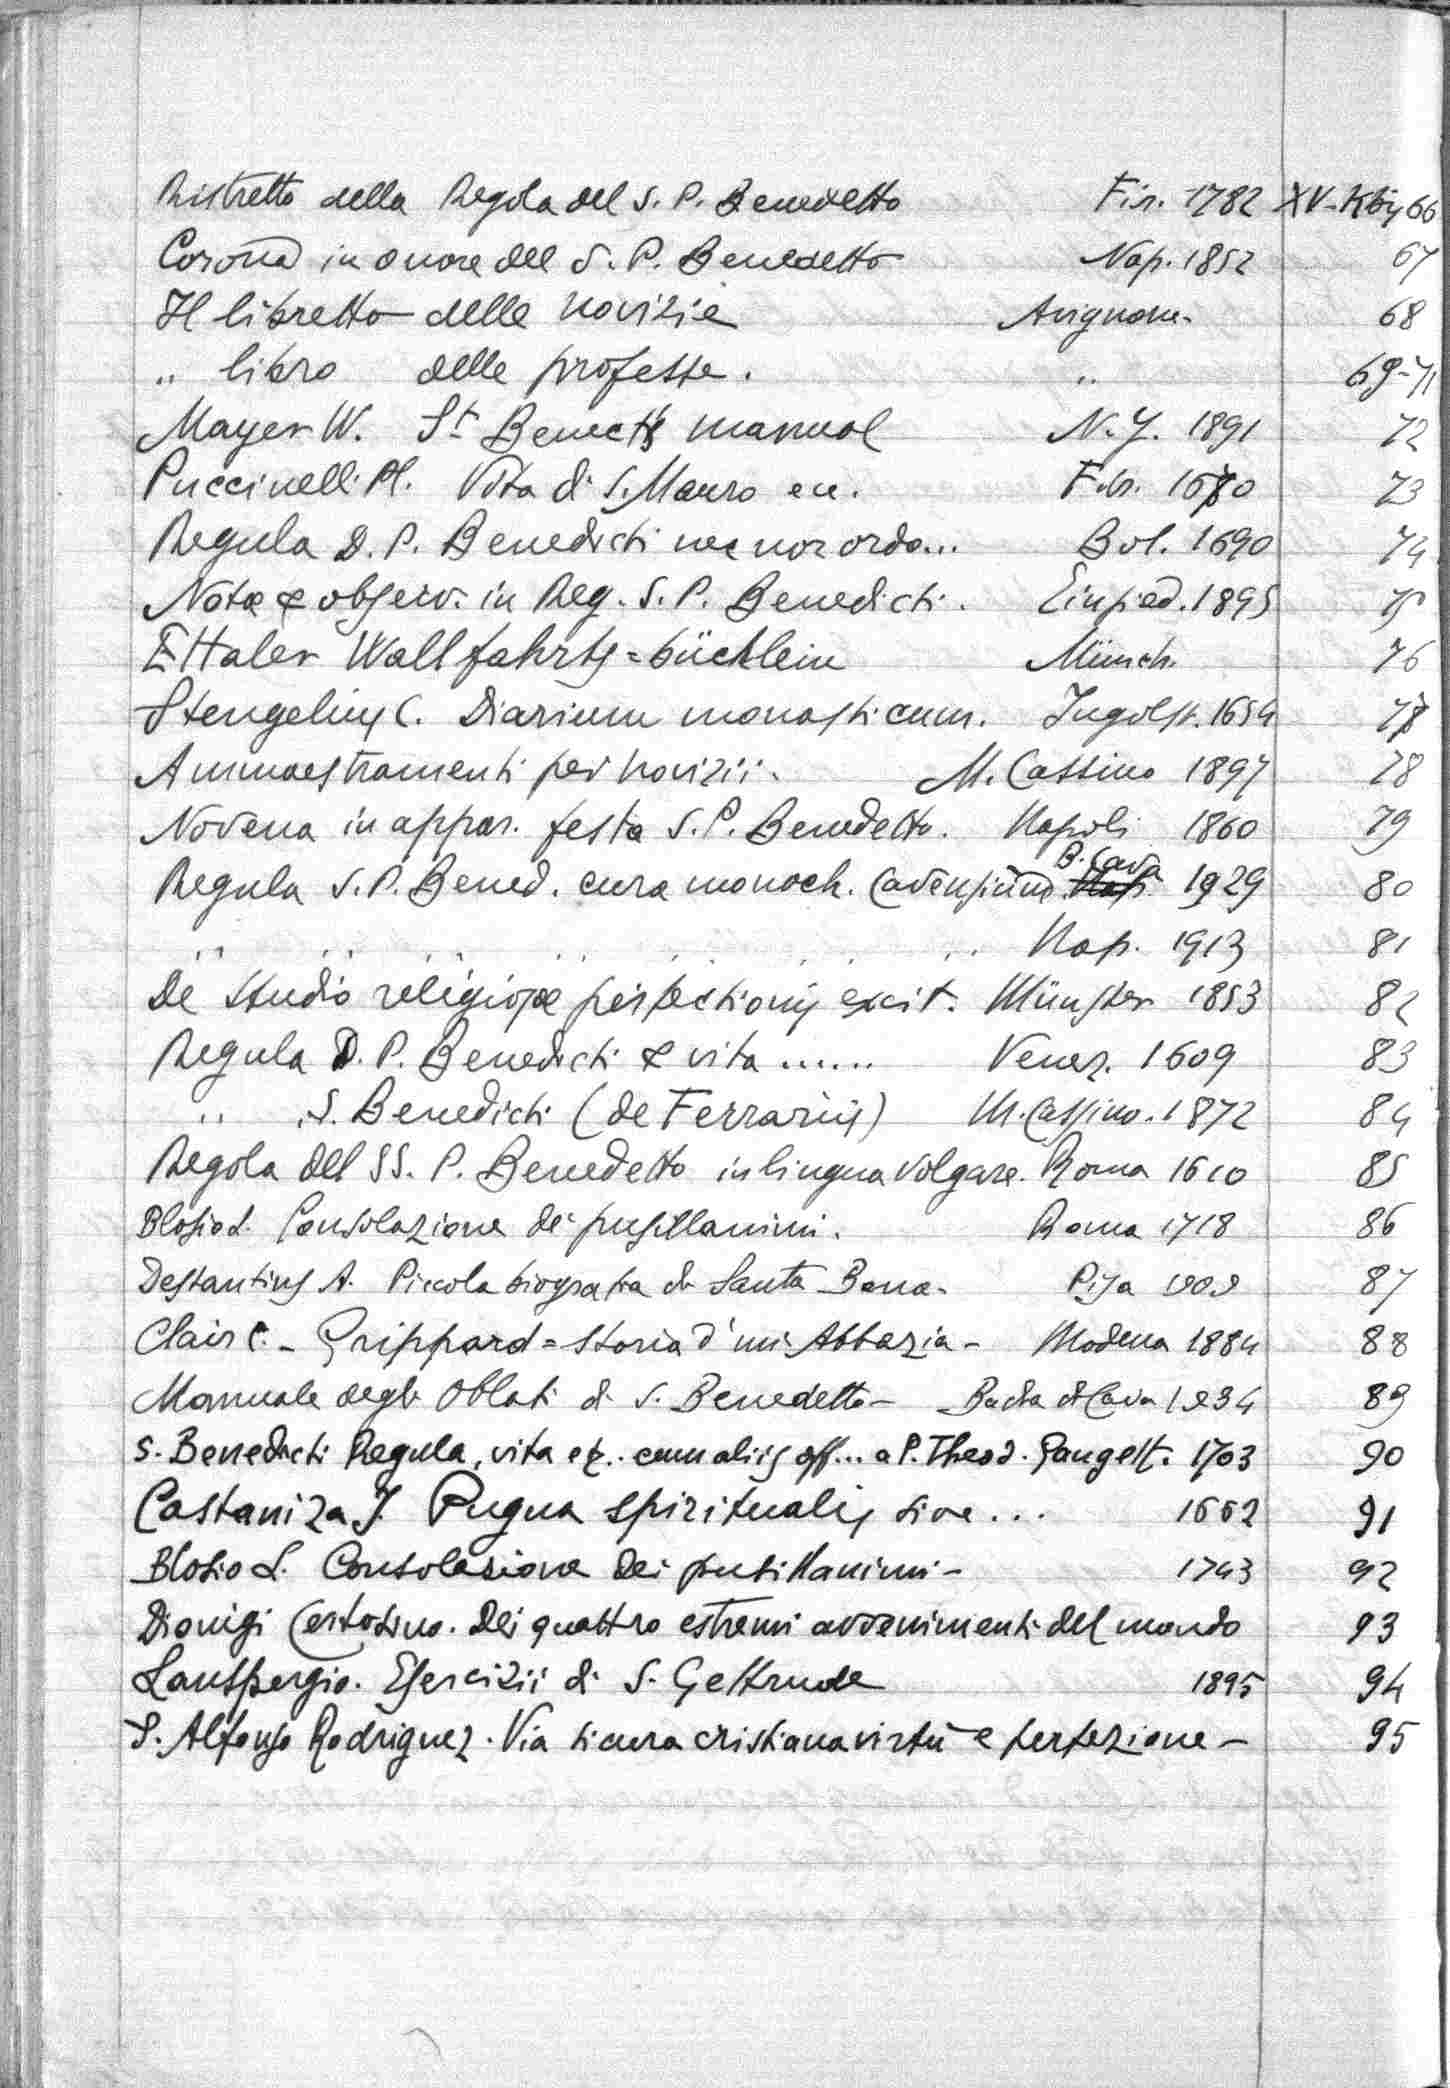 Ristretto della Regola del S. P. Benedetto Fir. 1782 XV-Kbis 66
Corona in onore del S. P. Benedetto Nap. 1852 67
Il libretto delle novizie Avignone- 68
„ libro delle professe. „ 69-71
Mayer W. St Benect's manual N.Y. 1891 72
Puccinelli Pl. Vita di S. Mauro ecc. Fir. 1670 73
Regula D. P. Benedicti nec non ordo... Bol. 1690 74
Notæ & observ. in Reg. S. P. Benedicti. Einsied. 1895 75
Ettaler Wallfahrts=büchlein Münch. 76
Stengelius C. Diarium monasticum. Ingolst. 1654 77
Ammaestramenti pei novizii. M. Cassino 1897 78
Novena in appar. festa S. P. Benedetto. Napoli 1860 79
Regula S. P. Bened. cura monach. Cavensium B. Cava 1929 80
„ „ „ „ „ „ Nap. 1913 81
De studio religiosæ perfectionis excit. Münster 1853 82
Regula D. P. Benedicti & vita ...... Venez. 1609 83
„ S. Benedicti (de Ferrariis) M. Cassino. 1872 84
Regola del SS. P. Benedetto in lingua volgare. Roma 1610 85
Blosio L. Consolazione dei pusillanimi. Roma 1718 86
Desantius A. Piccola biografia di Santa Bona- Pisa 87
Clair C. - Grippard = storia d'un Abbazia - Modena 1884 88
Manuale degli Oblati di S. Benedetto - Badia di Cava 1934 89
S. Benedicti Regula, vita et.. cum aliis off... a P. Theod. Gangelt. 1703 90
Castaniza J. Pugna spiritualis sive ... 1662 91
Blosio L. Consolazione dei pusillanimi - 1743 92
Dionigi Certosino. Dei quattro estremi avvenimenti del mondo 93
Lanspergio. Esercizii di S. Geltrude 1895 94
S. Alfonso Rodriguez. Via sicura cristiana virtù e perfezione - 95